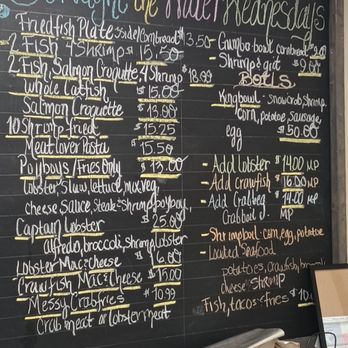 the Water Wednesdays
Fried fish Plate sside/cornbread $13.50
2 Fish 4 Shrimp $15.50
2 Fish, Salmon Croquette, 4 Shrimp $18.99
Whole Catfish $15.00
Salmon Croquette $16.00
10 Shrimp-fried $15.25
Meat lover Pasta $15.50
Poyboys/Fries Only $13.00
Lobster, slaw, lettuce, mixveg,
cheese sauce, steak & shrimp poyboy
Captain Lobster $25.00
alfredo, broccoli, shrimp, lobster
Lobster Mac & cheese $16.00
Crawfish Mac & Cheese $15.00
Messy Crabfries $10.99
Crab meat or lobster meat
Gumbo bowl cornbread
Shrimp & grit
Boils
King bowl - snow crab, shrimp,
corn, potato, sausage,
egg $50.00
- Add Lobster $14.00 MP
- Add Crawfish $16.00 MP
- Add Crableg $14.00 MP
Crab boil MP
- Shrimp boil - corn, egg, potatoe
- Loaded Seafood
potatoes, crawfish,
cheese shrimp
Fish, tacos & fries $10.